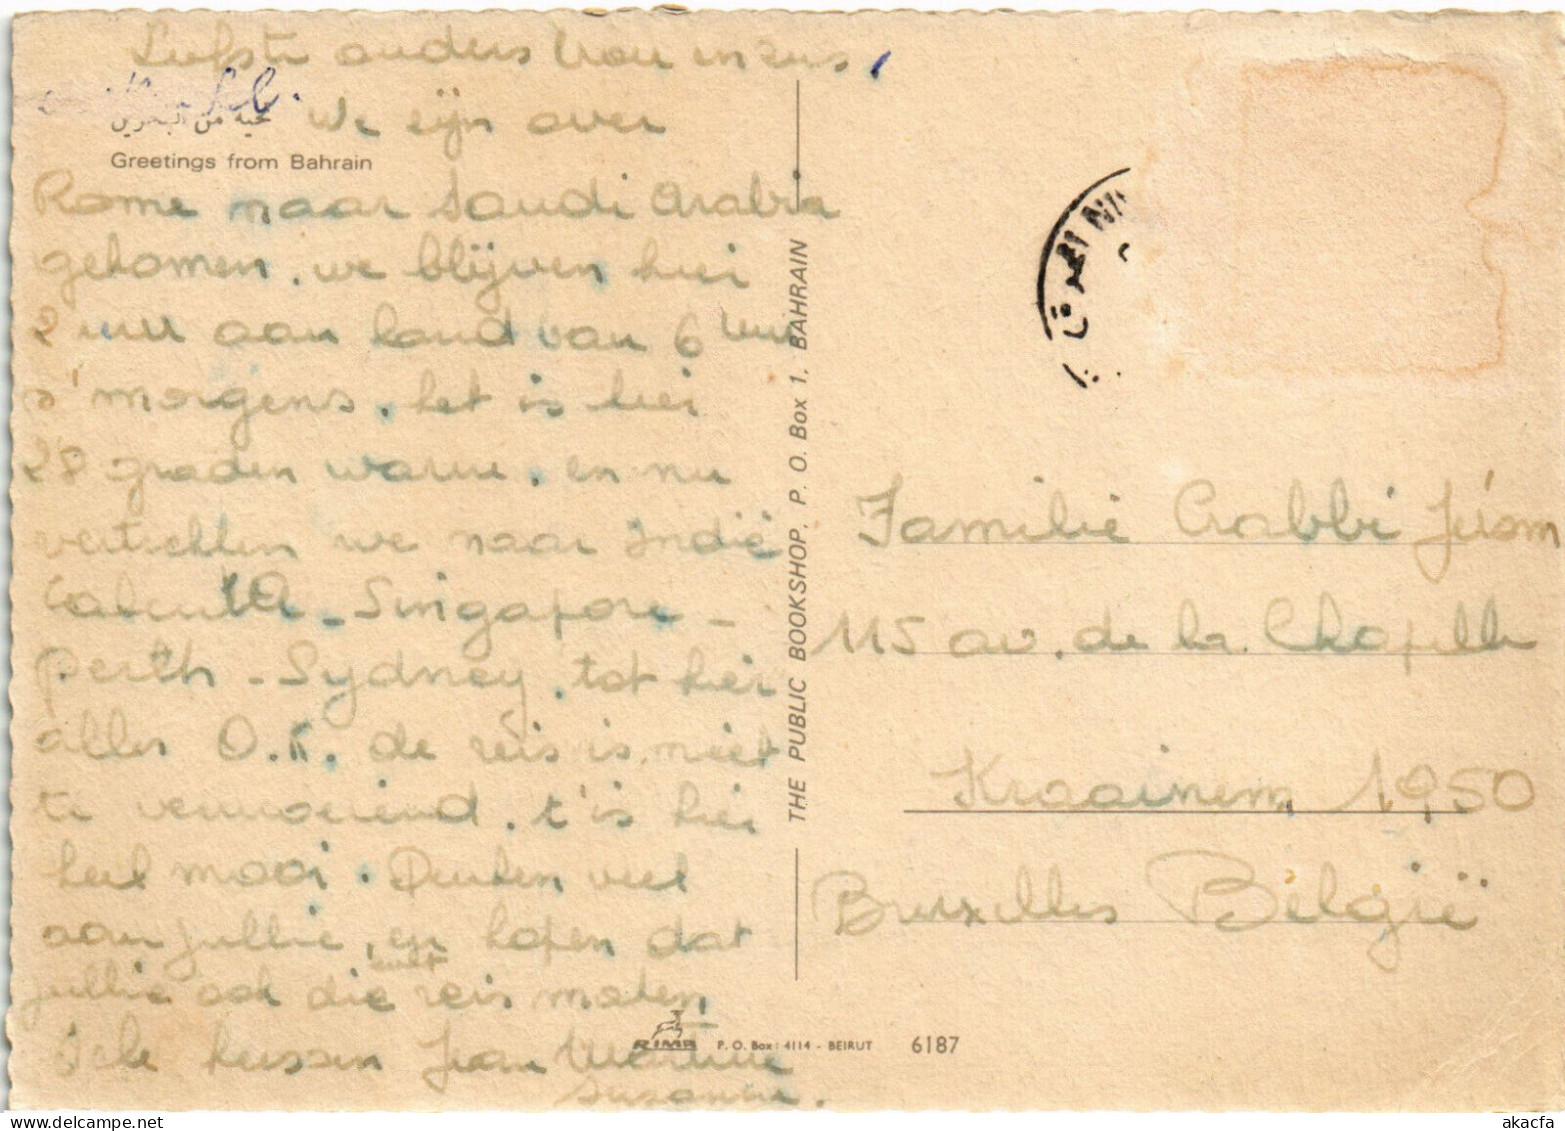 Liefste ouders Broer en zus,
تحية من البحرين We zijn over
Greetings from Bahrain
Rome naar Saudi Arabia
gekomen. we blijven hier
2 uur aan land van 6 uur
s'morgens. het is hier
28 graden warm. en nu
vertrekken we naar Indië
Calcutta - Singapore -
Perth - Sydney. tot hier
alles O.K. de reis is niet
te vermoeiend. t'is hier
heel mooi. Denken veel
aan jullie, en hopen dat
jullie ook die reis maken,
kussen Jean Martine
Susanne.
THE PUBLIC BOOKSHOP, P. O. Box 1. BAHRAIN
Familie Crabbé Jérom
115 av. de la Chapelle
Kraainem 1950
Bruxelles België
RIMA P.O. Box: 4114 - BEIRUT 6187
www.delcampe.net
akacfa